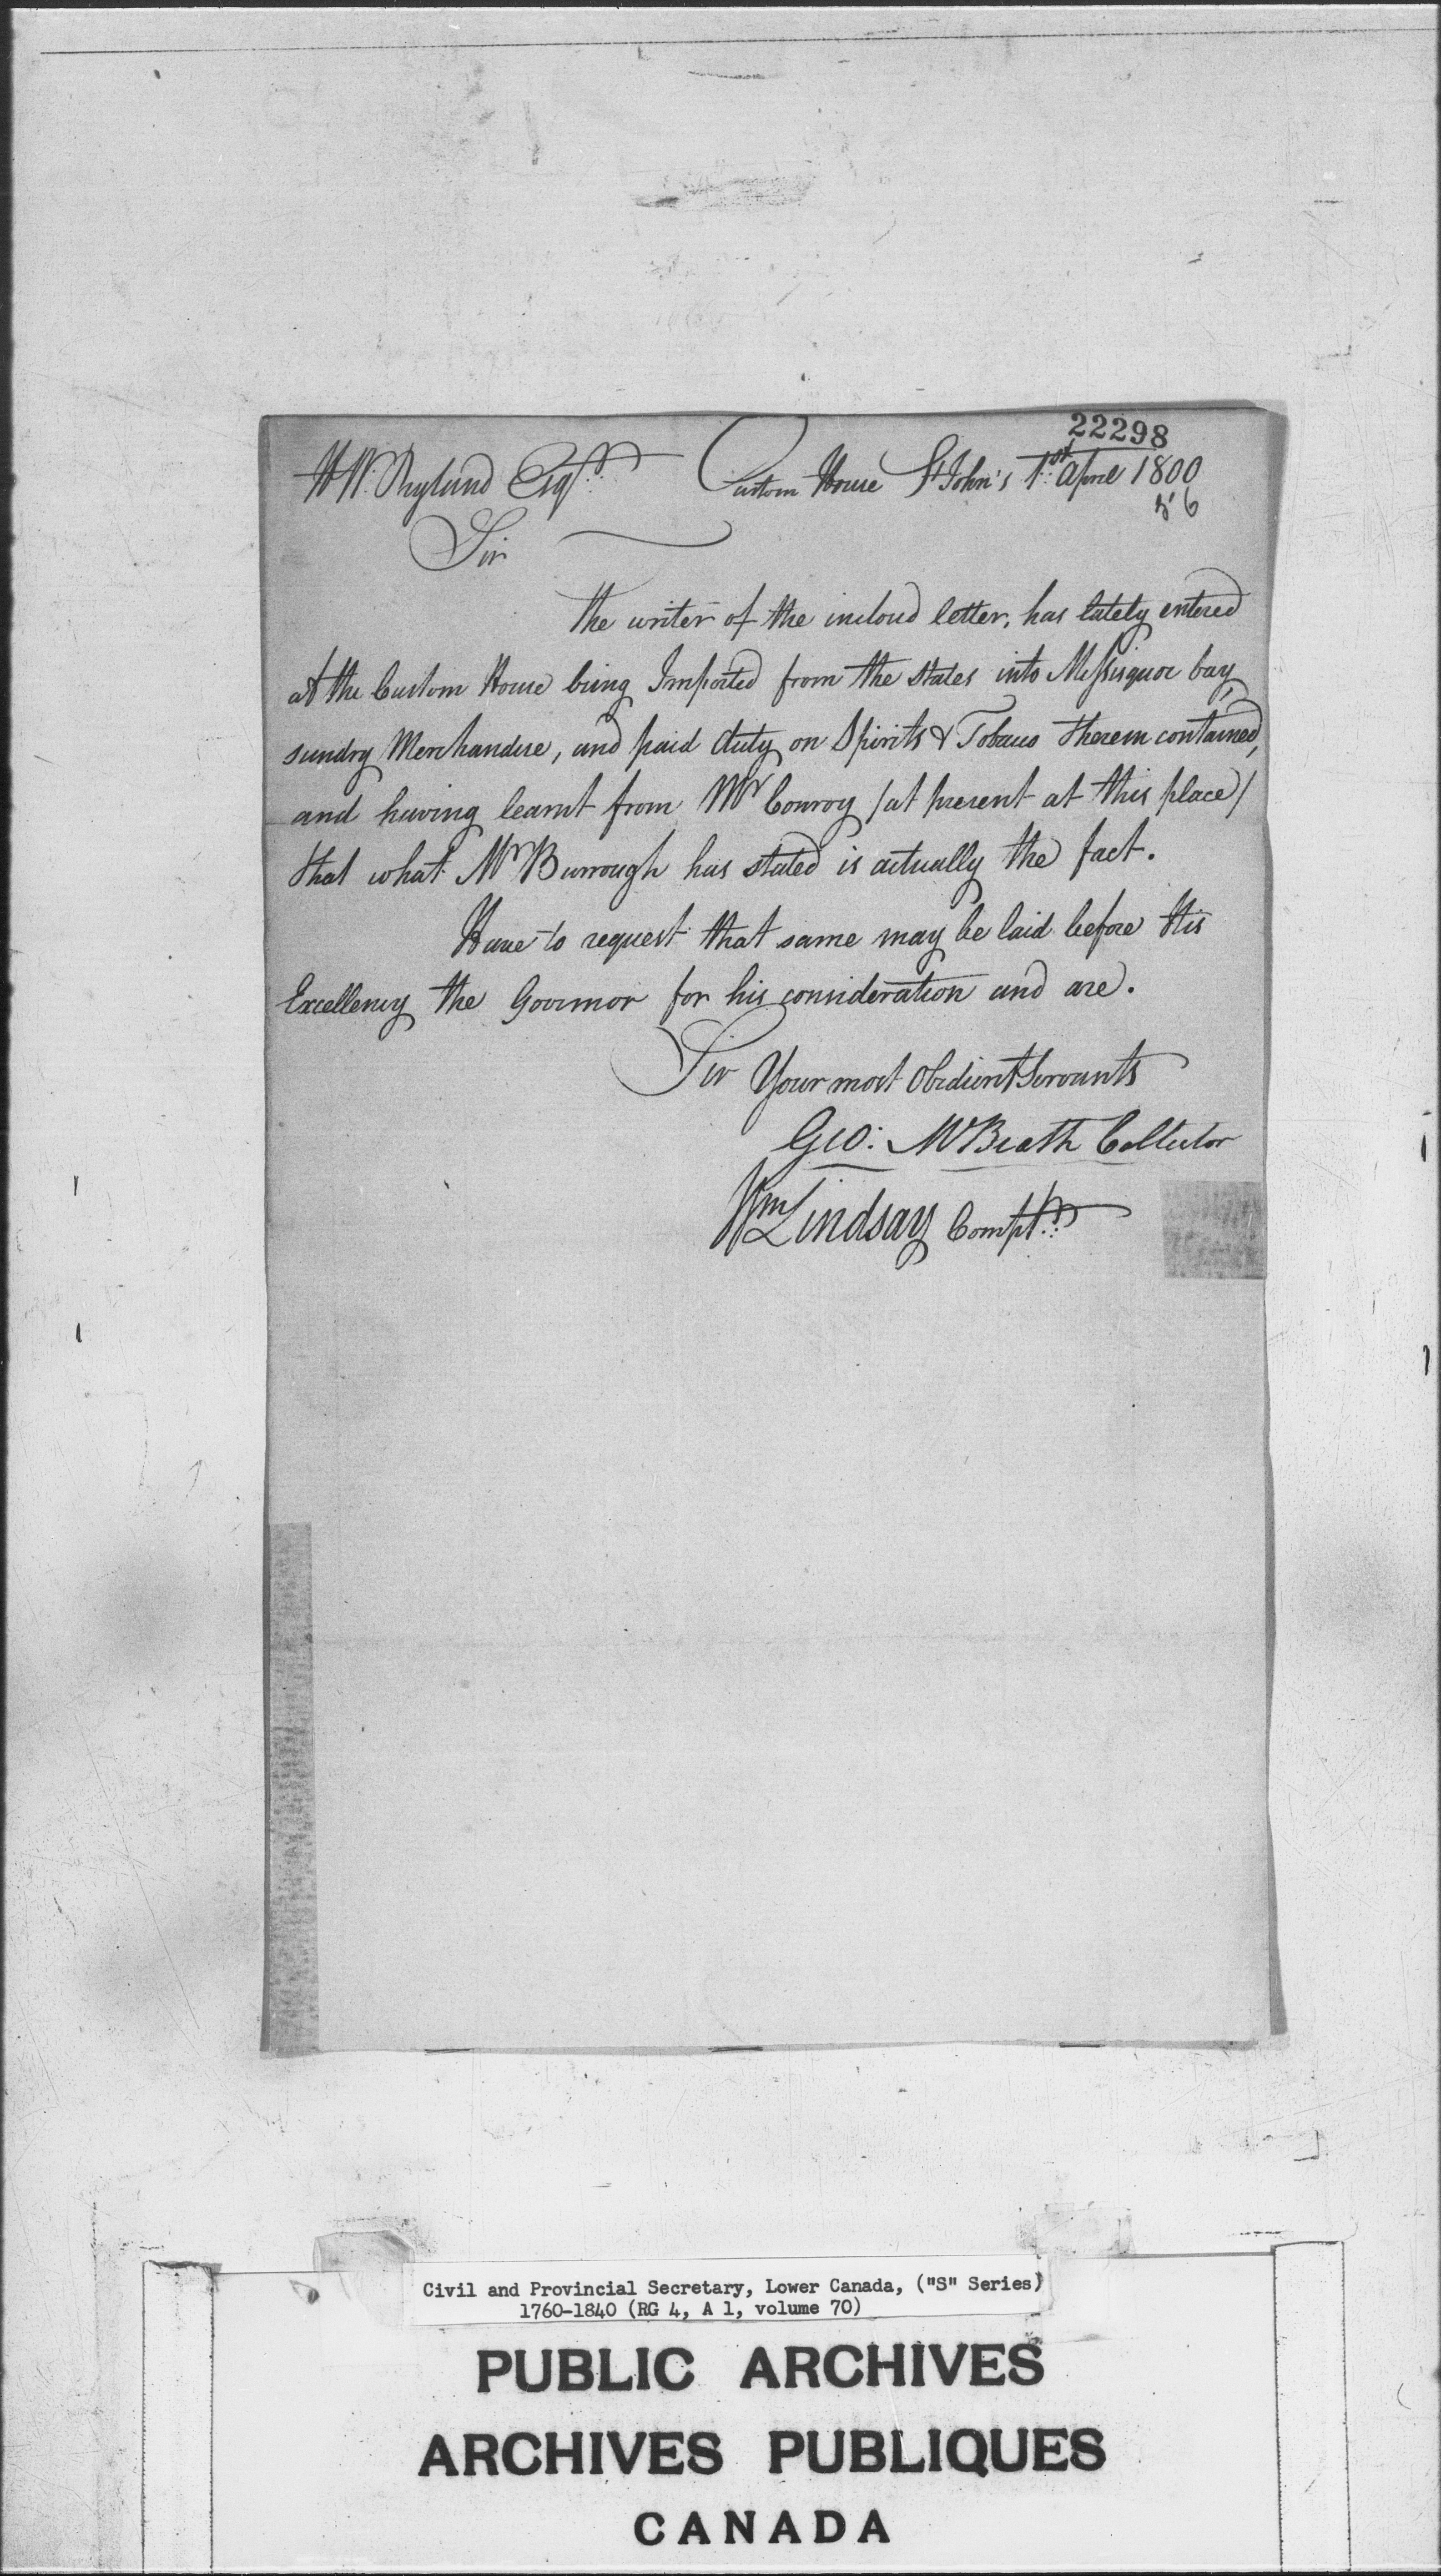 22298
H W. Ryland Esqr. Custom House St John's 1st April 1800
56
Sir
the writer of the inclosd letter, has lately entered
at the Custom House being Imported from the States into Missisquoi bay,
sundry Merchandise, and paid duty on Spirits & Tobacco therein contained,
and having learnt from Mr Conroy /at present at this place/
that what Mr Burrough has stated is actually the fact.
Have to request that same may be laid before His
Excellency the Governor for his consideration and are.
Sir Your most Obedient Servants
Geo: McBeath Collector
Wm Lindsay Comptr.
Civil and Provincial Secretary, Lower Canada, ("S" Series)
1760-1840 (RG 4, A 1, volume 70)
PUBLIC ARCHIVES
ARCHIVES PUBLIQUES
CANADA